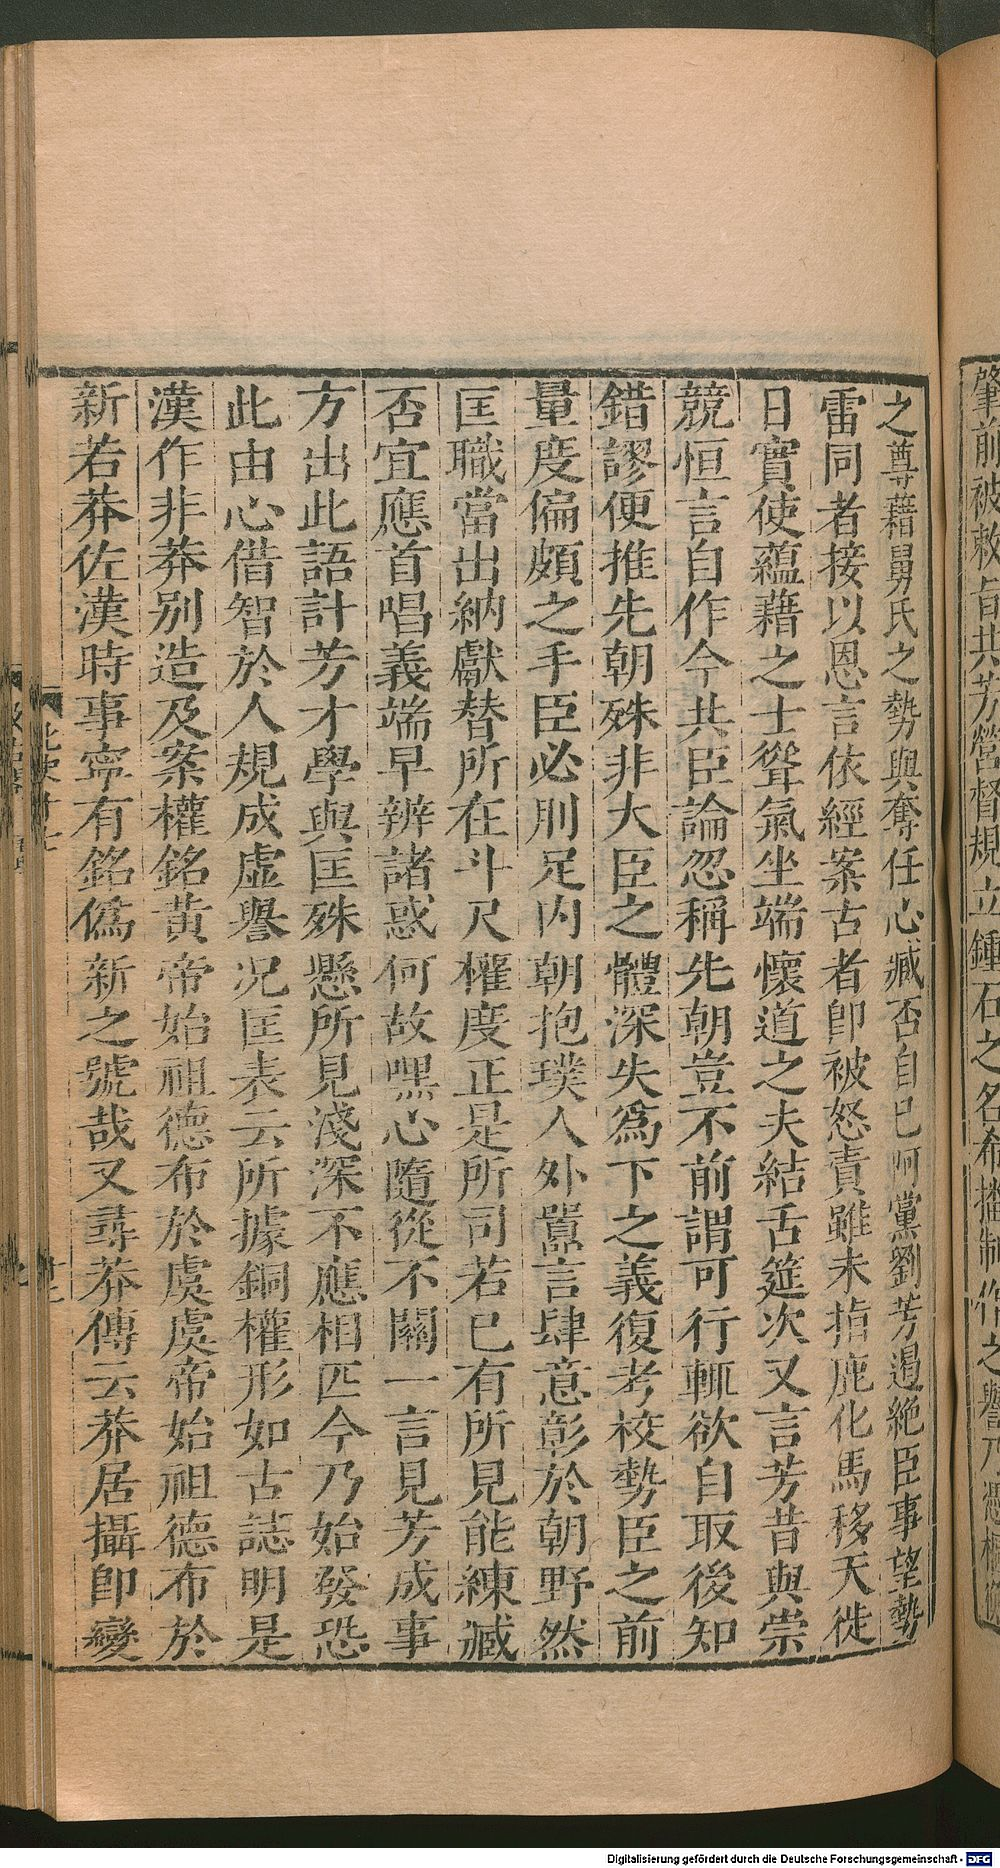 肇前被敕旨共芳營督規立鍾石之名希播制作之譽乃憑樞
之尊藉舅氏之勢與奪任心臧否自已阿黨劉芳遏絶臣事望勢
雷同者接以恩言依經案古者卽被怒責雖未指鹿化馬移天徙
日實使藴藉之士聳氣坐端懷道之夫結舌筵次又言芳昔與崇
競恒言自作今共臣論忽稱先朝豈不前謂可行輒欲自取後知
錯謬便推先朝殊非大臣之體深失爲下之義復考校勢臣之前
量度偏頗之手臣必刖足内朝抱璞人外囂言肆意彰於朝野然
匡職當出納獻替所在斗尺權度正是所司若已有所見能練臧
否宜應首唱義端早辨諸惑何故嘿心隨從不關一言見芳成事
方出此語計芳才學與匡殊懸所見淺深不應相匹今乃始發恐
此由心借智於人規成虚譽况匡表云所據銅權形如古誌明是
漢作非莽别造及案權銘黄帝始祖德布於虞虞帝始祖德布於
新若莽佐漢時事寧有銘僞新之號哉又尋莽傳云莽居攝卽變
Digitalisierung gefördert durch die Deutsche Forschungsgemeinschaft - DFG